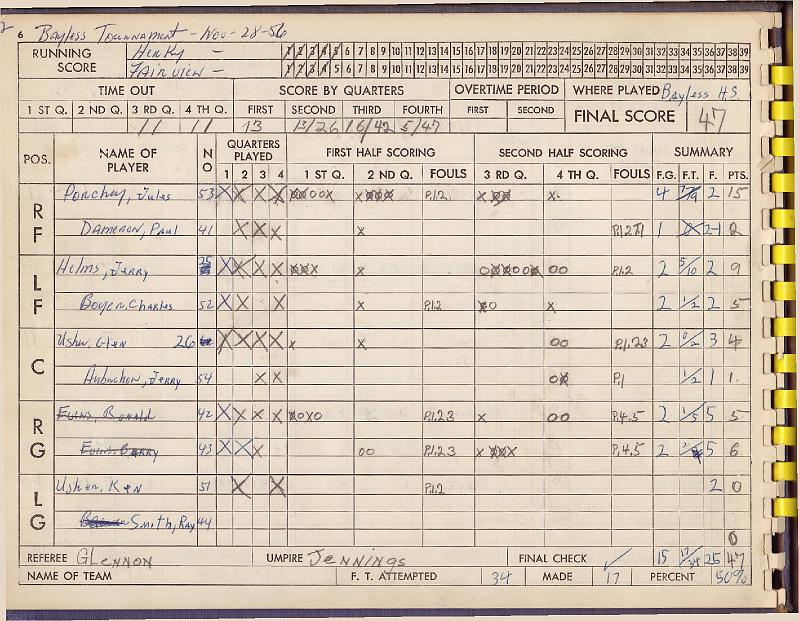 6 Bayless Tournament - Nov - 28-56
RUNNING SCORE
Herky -
1 2 3 4 5 6 7 8 9 10 11 12 13 14 15 16 17 18 19 20 21 22 23 24 25 26 27 28 29 30 31 32 33 34 35 36 37 38 39
Fairview -
1 2 3 4 5 6 7 8 9 10 11 12 13 14 15 16 17 18 19 20 21 22 23 24 25 26 27 28 29 30 31 32 33 34 35 36 37 38 39
TIME OUT SCORE BY QUARTERS OVERTIME PERIOD WHERE PLAYED Bayless H.S.
1 ST Q. 2 ND Q. 3 RD Q. 4 TH Q. FIRST SECOND THIRD FOURTH FIRST SECOND FINAL SCORE 47
11 11 13 13/26 16/42 5/47
POS. NAME OF PLAYER NO QUARTERS PLAYED FIRST HALF SCORING SECOND HALF SCORING SUMMARY
1 2 3 4 1 ST Q. 2 ND Q. FOULS 3 RD Q. 4 TH Q. FOULS F.G. F.T. F. PTS.
RF
Jules 53 X X X X P.1.2 4 2 15
Dameron, Paul 41 X X X x 1 2
LF
Helms, Jerry 25 X X X X x oo P.1.2 2 5/10 2 9
Boyer, Charles 52 X X X x P.1.2 x 2 1/2 2 5
C
Usher, Glen 26 X X X X x x oo P.1.23 2 0/2 3 4
Aubuchon, Jerry 54 X X P.1 1/2 1 1
RG
Evans, Ronald 42 X X X X P.1.2.3 x oo P.4.5 2 1/5 5 5
Evans, Barry 43 X X X oo P.1.2.3 P.4.5 2 5 6
LG
Usher, Ken 51 X X P.1.2 2 0
Smith, Ray 44
0
REFEREE Glennon UMPIRE Jennings FINAL CHECK ✓ 15 17/34 25 47
NAME OF TEAM F. T. ATTEMPTED 34 MADE 17 PERCENT 50%